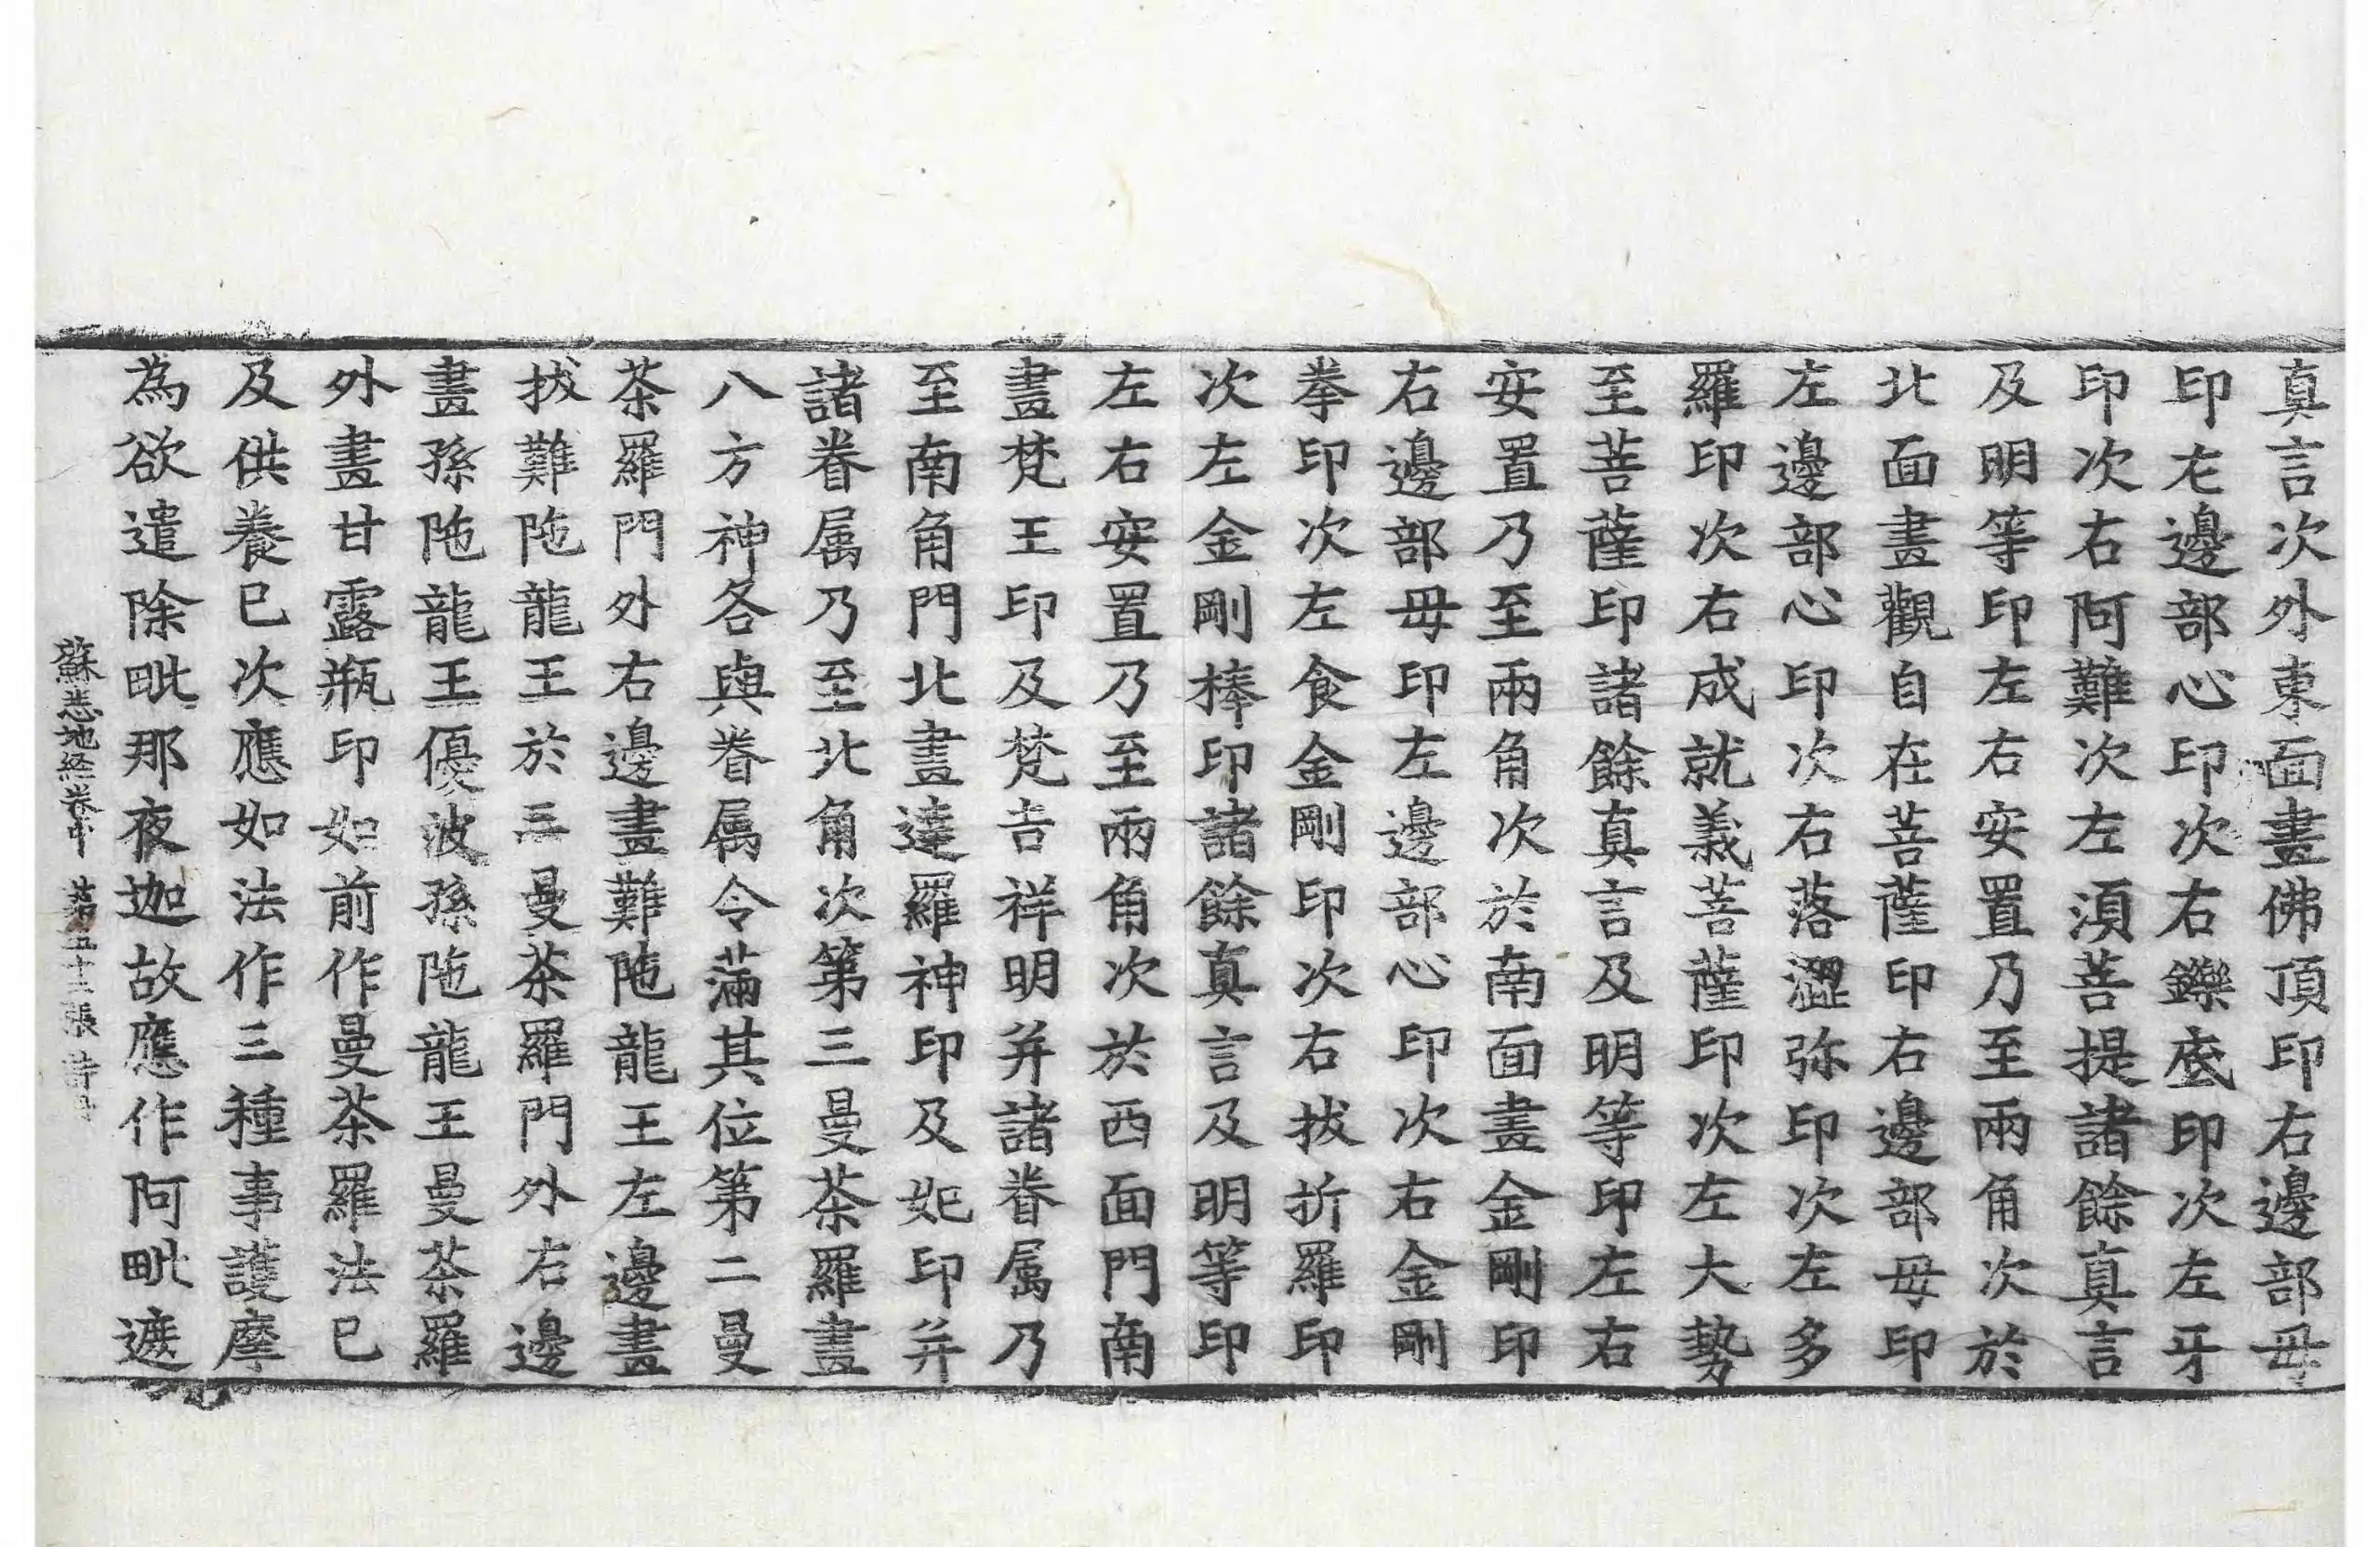 真言次外東面畫佛頂印右邊部母
印左邊部心印次右鑠底印次左牙
印次右阿難次左湏菩提諸餘真言
及明等印左右安置乃至兩角次於
北面畫觀自在菩薩印右邊部母印
左邊部心印次右落澀弥印次左多
羅印次右成就義菩薩印次左大勢
至菩薩印諸餘真言及明等印左右
安置乃至兩角次於南面畫金剛印
右邊部母印左邊部心印次右金剛
拳印次左食金剛印次右拔折羅印
次左金剛棒印諸餘真言及明等印
左右安置乃至兩角次於西面門南
畫梵王印及梵吉祥明并諸眷属乃
至南角門北畫達羅神印及妃印并
諸眷属乃至北角次第三曼茶羅畫
八方神各與眷属令滿其位第二曼
茶羅門外右邊畫難陁龍王左邊畫
拔難陁龍王於三曼茶羅門外右邊
畫孫陁龍王優波孫陁龍王曼茶羅
外畫甘露瓶印如前作曼茶羅法已
及供養已次應如法作三種事護摩
為欲遣除毗那夜迦故應作阿毗遮
蘇悉地経卷中 苐五十二張 詩号